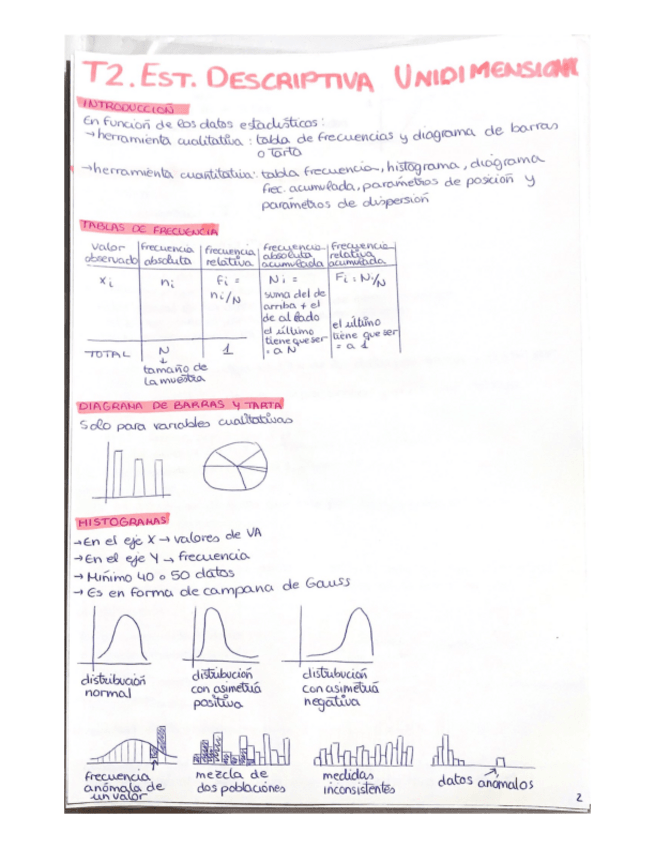 T2. EST. DESCRIPTIVA UNIDIMENSIONAL
INTRODUCCIÓN
En función de los datos estadísticos:
→herramienta cualitativa: tabla de frecuencias y diagrama de barras
o tarta
→herramienta cuantitativa: tabla frecuencia, histograma, diagrama
frec. acumulada, parámetros de posición y
parámetros de dispersión
TABLAS DE FRECUENCIA
valor observado | frecuencia absoluta | frecuencia relativa | frecuencia absoluta acumulada | frecuencia relativa acumulada
xi | ni | fi = ni/N | Ni = suma del de arriba + el de al lado el último tiene que ser = a N | Fi = Ni/N el último tiene que ser = a 1
TOTAL | N | 1
↓
tamaño de
la muestra
DIAGRAMA DE BARRAS Y TARTA
Solo para variables cualitativas
HISTOGRAMAS
→En el eje X → valores de VA
→En el eje Y → frecuencia
→ Mínimo 40 o 50 datos
→ Es en forma de campana de Gauss
distribución normal
distribución con asimetría positiva
distribución con asimetría negativa
frecuencia anómala de un valor
mezcla de dos poblaciones
medidas inconsistentes
datos anómalos
2